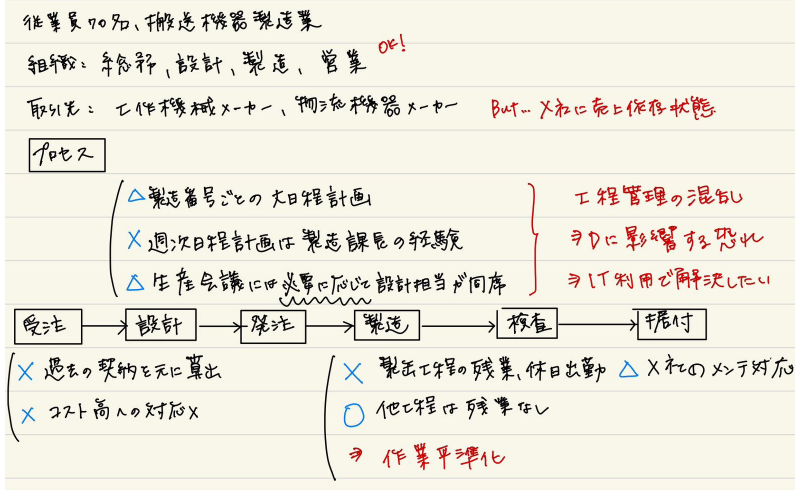 従業員70名、搬送機器製造業
組織: 総務, 設計, 製造, 営業 OK!
取引先: 工作機械メーカー、物流機器メーカー But... X社に売上依存状態
プロセス
△製造番号ごとの大日程計画 工程管理の混乱
X 週次日程計画は製造課長の経験 ⇒Dに影響する恐れ
△ 生産会議には必要に応じて設計担当が同席 ⇒IT利用で解決したい
受注 → 設計 → 発注 → 製造 → 検査 → 据付
X 過去の契約を元に算出 X 製缶工程の残業、休日出勤 △ X社のメンテ対応
X コスト高への対応X ○ 他工程は残業なし
⇒ 作業平準化